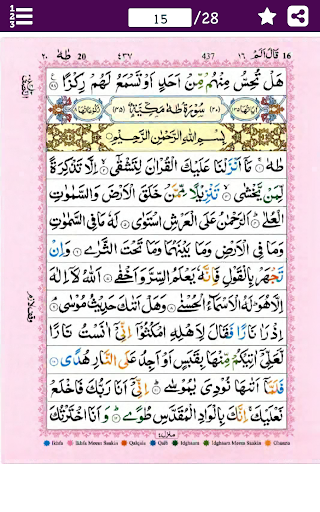 15 /28
٢٠ طٰهٰ 20 ٤٣٧ 437 ١٦ قَالَ اَلَمْ 16
هَلْ تُحِسُّ مِنْهُمْ مِّنْ اَحَدٍ اَوْ تَسْمَعُ لَهُمْ رِكْزًا
سُوْرَةُ طٰهٰ مَكِّيَّةٌ
بِسْمِ اللّٰهِ الرَّحْمٰنِ الرَّحِيْمِ
طٰهٰ مَاۤ اَنْزَلْنَا عَلَيْكَ الْقُرْاٰنَ لِتَشْقٰۤى اِلَّا تَذْكِرَةً
لِّمَنْ يَّخْشٰى تَنْزِيْلًا مِّمَّنْ خَلَقَ الْاَرْضَ وَالسَّمٰوٰتِ
الْعُلٰى اَلرَّحْمٰنُ عَلَى الْعَرْشِ اسْتَوٰى لَهٗ مَا فِى السَّمٰوٰتِ
وَمَا فِى الْاَرْضِ وَمَا بَيْنَهُمَا وَمَا تَحْتَ الثَّرٰى وَاِنْ
تَجْهَرْ بِالْقَوْلِ فَاِنَّهٗ يَعْلَمُ السِّرَّ وَاَخْفٰى اَللّٰهُ لَاۤ اِلٰهَ
اِلَّا هُوَ لَهُ الْاَسْمَآءُ الْحُسْنٰى وَهَلْ اَتٰىكَ حَدِيْثُ مُوْسٰى
اِذْ رَاٰ نَارًا فَقَالَ لِاَهْلِهِ امْكُثُوْۤا اِنِّىْۤ اٰنَسْتُ نَارًا
لَّعَلِّىْۤ اٰتِيْكُمْ مِّنْهَا بِقَبَسٍ اَوْ اَجِدُ عَلَى النَّارِ هُدًى
فَلَمَّاۤ اَتٰىهَا نُوْدِىَ يٰمُوْسٰى اِنِّىْۤ اَنَا رَبُّكَ فَاخْلَعْ
نَعْلَيْكَ اِنَّكَ بِالْوَادِ الْمُقَدَّسِ طُوًى وَاَنَا اخْتَرْتُكَ
Ikhfa Ikhfa Meem Saakin Qalqala Qalb Idghaam Idghaam Meem Saakin Ghunna